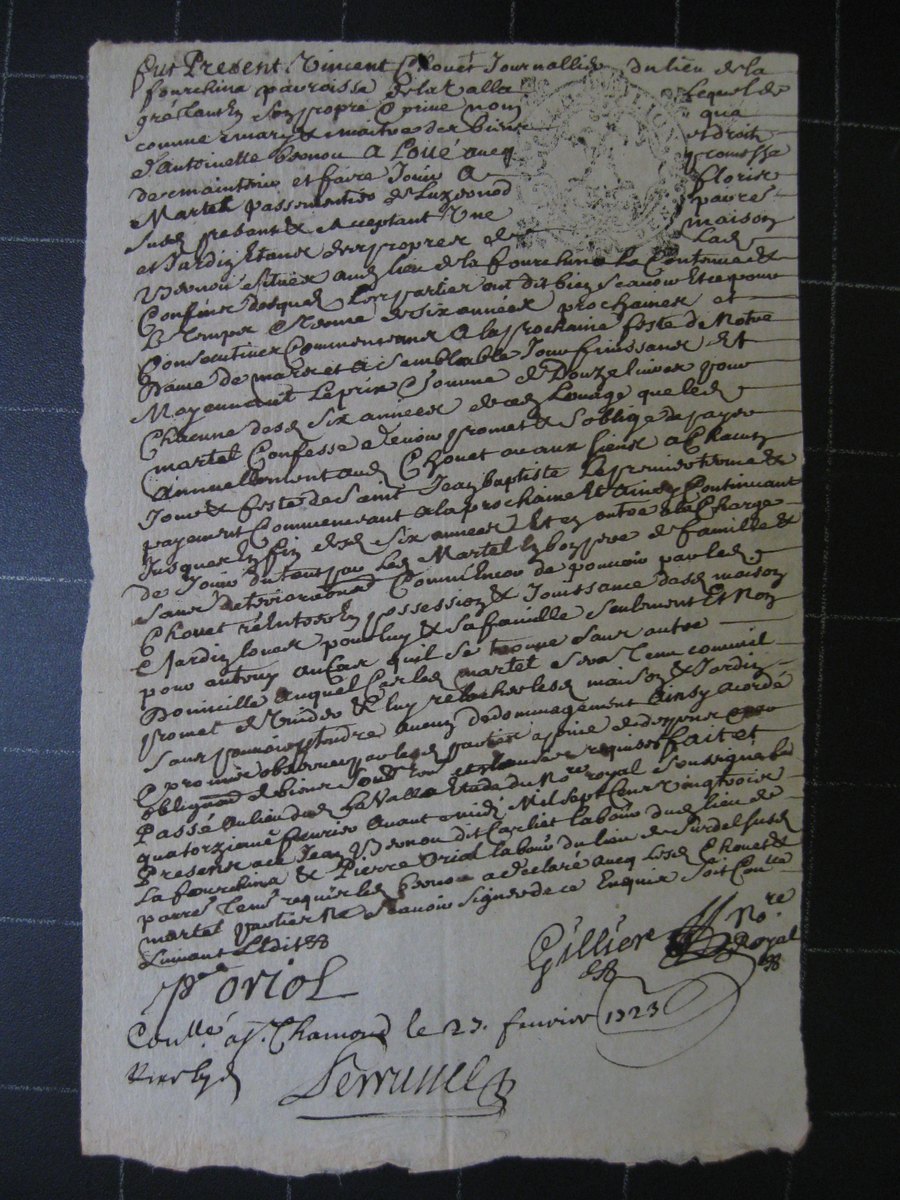 fut Present Vincent Chovet Journallier du lieu de la
fourchina parroisse de la Valla Lequel de
gré tant en son propre & privé nom que
comme mary & maitre des biens et droits
d'Antoinette bernou a Loüé avecq promesse
de maintenir et faire Jouir A floris
Martel passementier de parres
susd present & acceptant Une maison
et Jardin Etant des propres de Lad
bernou situés aud lieu de la fourchina La Contenue &
Confins desquels Les parties ont dit bien scavoir Et ce pour
Le temps & terme de six années prochaines et
Consecutives Commencant A la prochaine feste de Notre
Dame de mars et a semblable Jour finissant Et
Moyennant Le prix & somme de Douze livres pour
Chacune desd six années de ced Louage que led
martel Confesse devoir promet & s'oblige de payer
Annuellement aud Chovet ou aux siens a Chacun
Jour & feste de Saint Jean Baptiste Le premier terme &
payement Commencant a la prochaine Et Ainsy Continuant
Jusques a fin desd six années Et en outre a la Charge
de Jouir du tout par Led Martel en bon pere de famille &
sans deterioration Comm'encor de pouvoir par led
Chovet rentrer en possession & Jouissance desd maison
& Jardin loués pour luy & sa famille seulement Et Non
pour autruy au Cas qu'il se trouve sans autre
Domicille auquel Cas led martel sera tenu comm'il
promet de vuider & luy relacher lesd maison & Jardin
sans pouvoir pretendre aucun dedommagement Ainsy acordé
& promis observer par lesd parties a peine de depens &
obligation de biens Soub et clauses requises fait et
Passé au lieu de La Valla Etude du Nre royal soussigné le
quatorzieme fevrier avant midi Mil sept Cent vingt trois
Presens a ce Jean bernou dit labour dud lieu de
La fourchina & Pierre Oriol labour du lieu de susd
parres tems requis led bernou a declaré avecq Lesd Chovet &
martel parties Ne scavoir signer de ce Enquis Soit Conlle
suivant L'Edit
P. oriol Gillier Nre Royal
Conllé a St. Chamond le 27. fevrier 1723
Serruuel